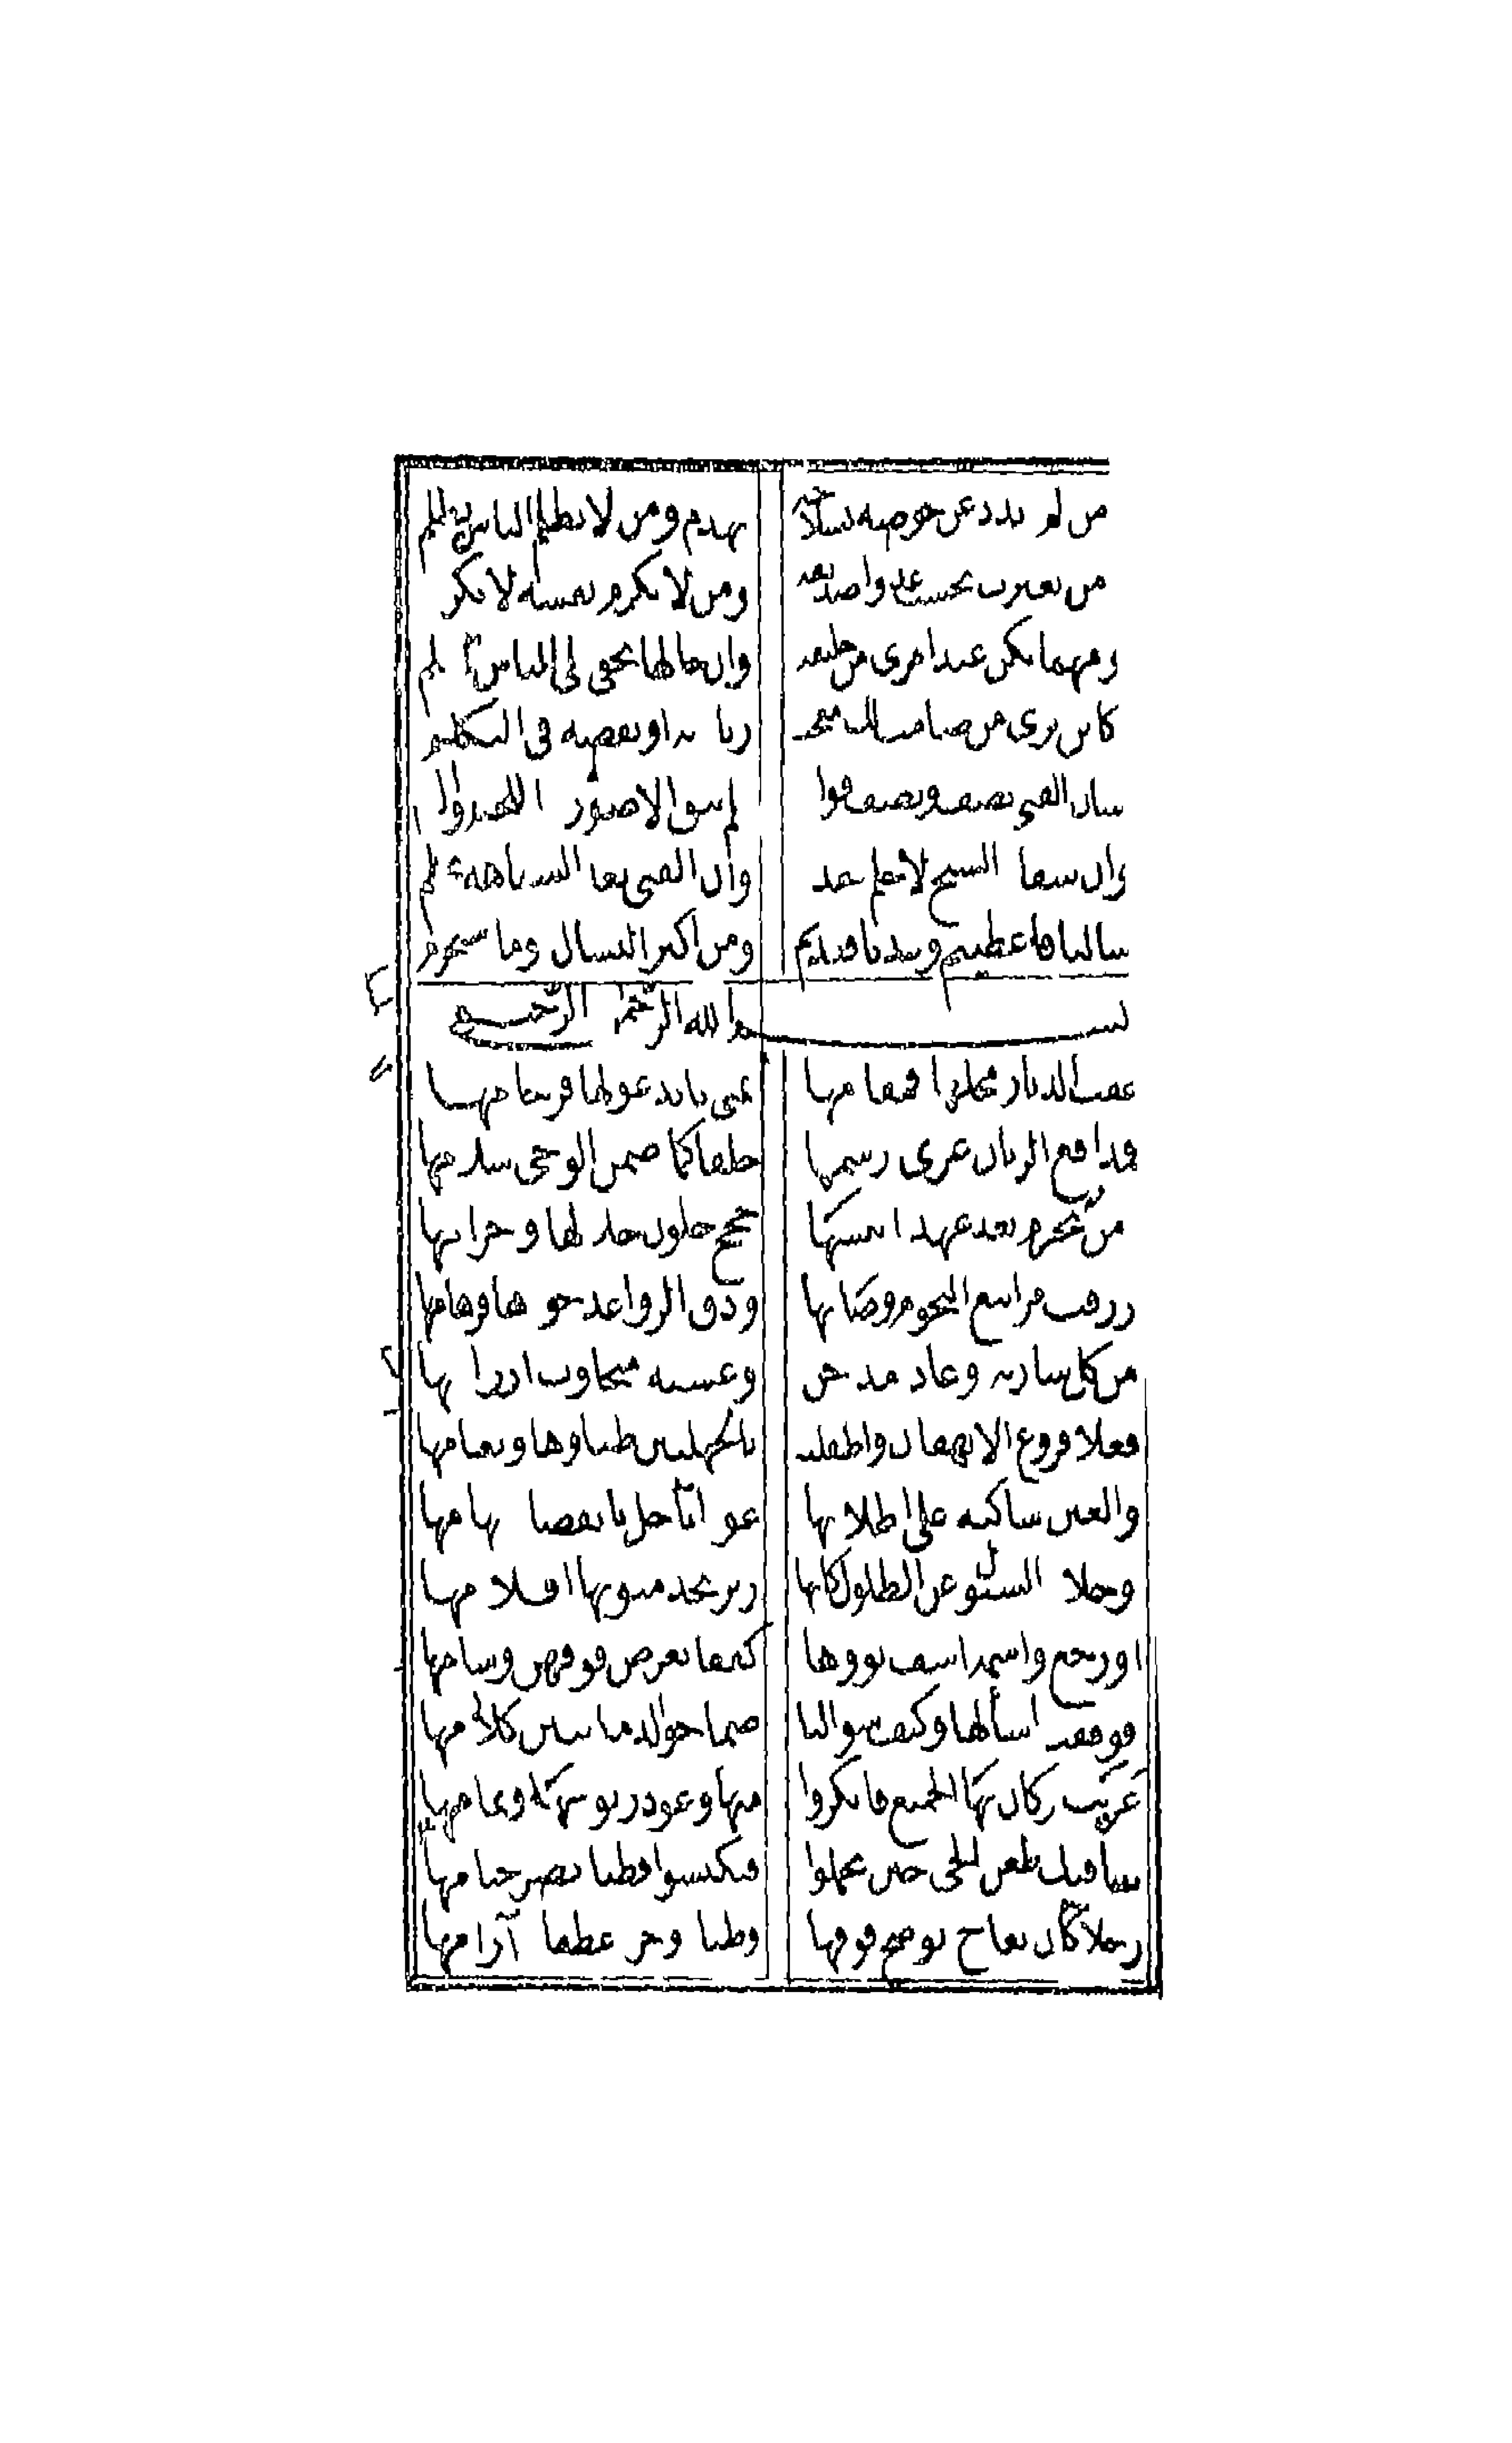 من لم يذد عن حوضه بسلاحه يهدم ومن لا يظلم الناس يظلم
من يغترب يحسب عدوا صديقه ومن لا يكرم نفسه لا يكر
ومهما يكن عند امرى من خليقه وان خالها تخفى على الناس تعلم
كاين ترى من صامت لك معجب زيا ته او نقصه فى التكلم
لسان الفتى نصف ونصف فوا لم يبق الا صورة اللحم والد
وان سفا الشيخ لا حلم بعد وان الفتى بعد السفاهة يحلم
سالنا فاعطيتم وعدنا فعدتم ومن اكثر التسال يوما سيحرم
بسم الله الرحمن الرحيم
عفت الديار محلها فمقامها بمنى تابد غولها فرجامها
فمدافع الريان عرى رسمها خلقا كما ضمن الوحى سلامها
دمن تجرم بعد عهد انيسها حجج خلون حلالها وحرامها
رزقت مرابيع النجوم وصابها ودق الرواعد جودها فرهامها
من كل سارية وغاد مدجن وعشية متجاوب ارزامها
فعلا فروع الايهقان واطفلت بالجهلتين ظباوها ونعامها
والعين ساكنة على اطلائها عوذا تاجل بالفضا بهامها
وجلا السيول عن الطلول كانها زبر تجد متونها اقلامها
او رجع واشمة اسف نوورها كففا تعرض فوقهن وشامها
فوقفت اسألها وكيف سوالنا صما خوالد ما يبين كلامها
عريت وكان بها الجميع فابكروا منها وغودر نويها وثمامها
شاقتك ظعن الحى حين تحملوا فتكنسوا قطنا تصر خيامها
زجلا كأن نعاج توضح فوقها وظبا وجر عطفا آرامها